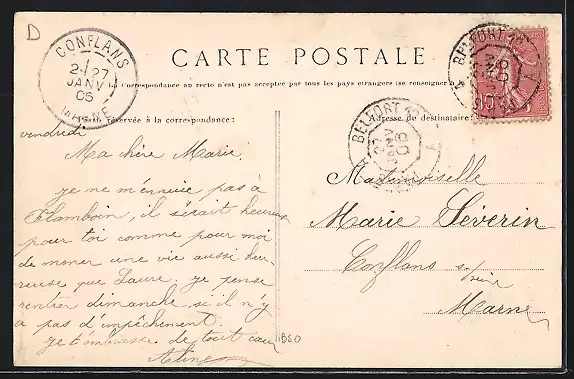 D
CONFLANS
2-27
JANV
06
MARNE
CARTE POSTALE
La Correspondance au recto n'est pas acceptée par tous les pays étrangers (se renseigner
BELFORT
10
Partie réservée à la correspondance:
Adresse du destinataire
BELFORT
27
JANV
06
vendredi
Ma chère Marie,
je ne m'ennuie pas à
Flamboin, il serait heureux
pour toi comme pour moi
de mener une vie aussi heu-
reuse que Laure. je pense
rentrer dimanche, si il n'y
a pas d'impêchement.
je t'embrasse de tout cœur
Aline
Mademoiselle
Marie Séverin
Conflans s/ Seine
Marne
BSD